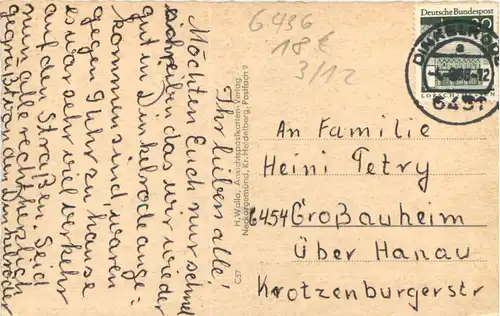 Ihr lieben alle!
Möchten Euch nur schnell
schreiben das wir wieder
gut in Dinkelrode ange:
kommen sind, waren
gegen 7 Uhr zu hause
es war sehr viel verkehr
auf den Straßen. Seid
nun alle recht herzlich
gegrüßt von den Dinkelroder
H. Walla, Ansichtspostkarten-Verlag
Neckargemünd, Kr. Heidelberg, Postfach 9
C57
6436
18 €
3/12
Deutsche Bundespost
6431
An Familie
Heini Petry
6454 Großauheim
über Hanau
Krotzenburgerstr